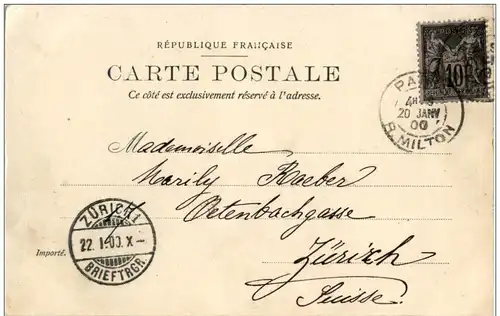 RÉPUBLIQUE FRANÇAISE
CARTE POSTALE
Ce côté est exclusivement réservé à l'adresse.
10
PARIS
20 JANV
00
R. MILTON
Mademoiselle
Marily Raeber
Oetenbachgasse
Zürich
Suisse.
ZÜRICH 1
22. I.00. X-
BRIEFTRGR.
Importé.